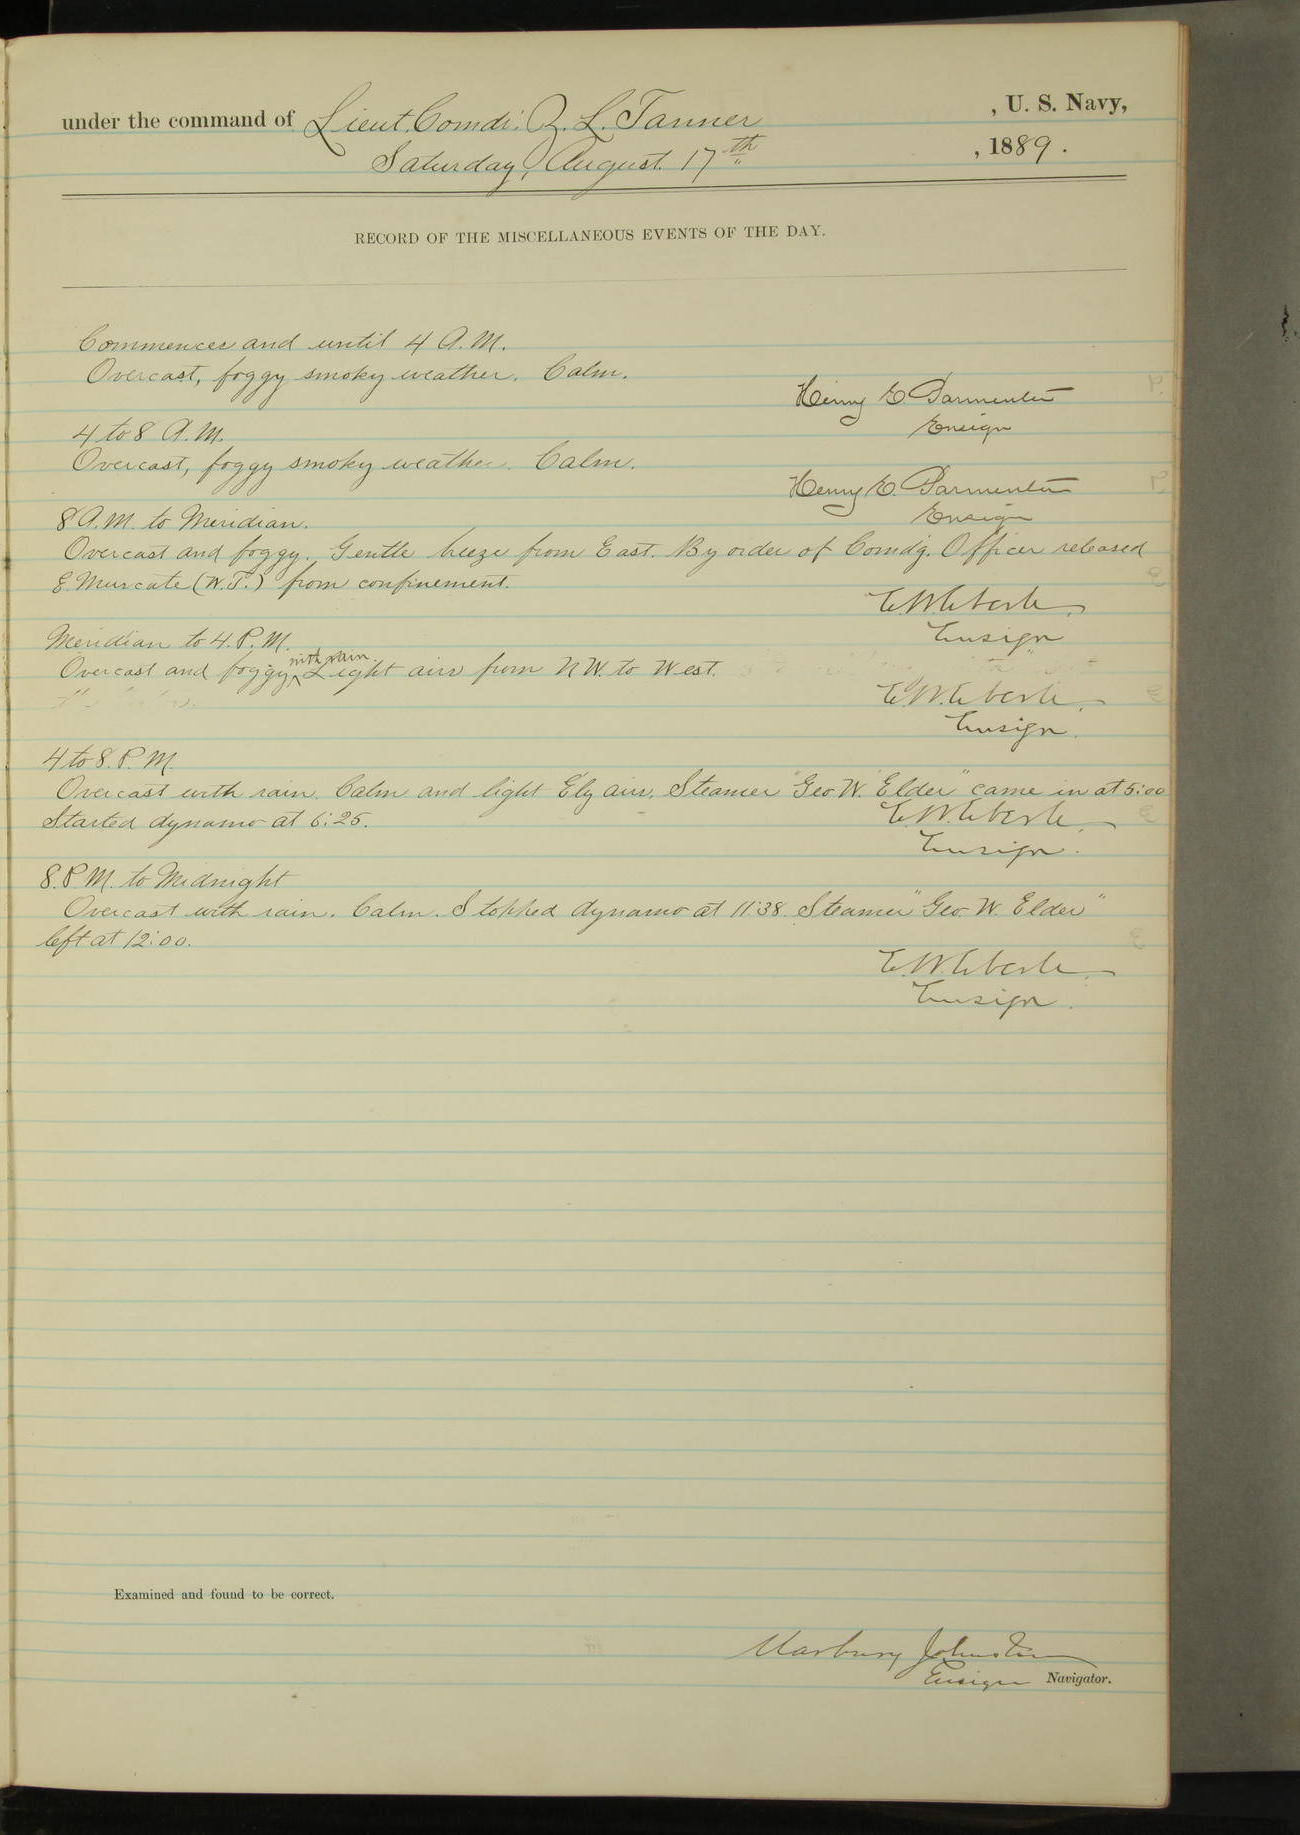 under the command of Lieut. Comdr. Z. L. Tanner, U. S. Navy,
Saturday, August 17th, 1889.
RECORD OF THE MISCELLANEOUS EVENTS OF THE DAY.
Commences and until 4 A.M.
Overcast, foggy smoky weather. Calm.
Henry E. Parmenter
Ensign
4 to 8 A.M.
Overcast, foggy smoky weather. Calm.
Henry E. Parmenter
Ensign
8 A.M. to Meridian.
Overcast and foggy. Gentle breeze from East. By order of Comd'g. Officer released
E. Murcate (W.T.) from confinement.
E.W. Eberle.
Ensign
Meridian to 4. P.M.
with rain.
Overcast and foggy, Light airs from NW. to West.
E.W. Eberle.
Ensign.
4 to 8. P.M.
Overcast with rain. Calm and light E'ly airs. Steamer "Geo W. Elder" came in at 5:00
Started dynamo at 6:25.
E.W. Eberle.
Ensign.
8. P.M. to Midnight
Overcast with rain. Calm. Stopped dynamo at 11:38. Steamer "Geo. W. Elder"
left at 12:00.
E.W. Eberle.
Ensign.
Examined and found to be correct.
Marbury Johnston
Ensign Navigator.